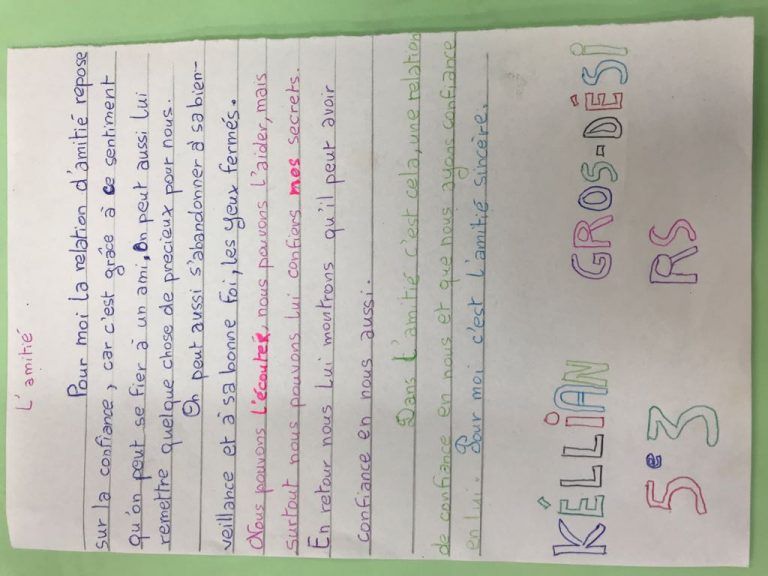 L'amitié.
Pour moi la relation d'amitié repose
sur la confiance, car c'est grâce à ce sentiment
qu'on peut se fier à un ami, On peut aussi lui
remettre quelque chose de precieux pour nous.
On peut aussi s'abandonner à sa bien-
veillance et à sa bonne foi, les yeux fermés.
Nous pouvons l'écouter, nous pouvons l'aider, mais
surtout nous pouvons lui confiers mes secrets.
En retour nous lui montrons qu'il peut avoir
confiance en nous aussi.
Dans l'amitié c'est cela, une relation
de confiance en nous et que nous ayons confiance
en lui. Pour moi c'est l'amitié sincère.
KÉLLIAN GROS-DÉSI
5e3 RS